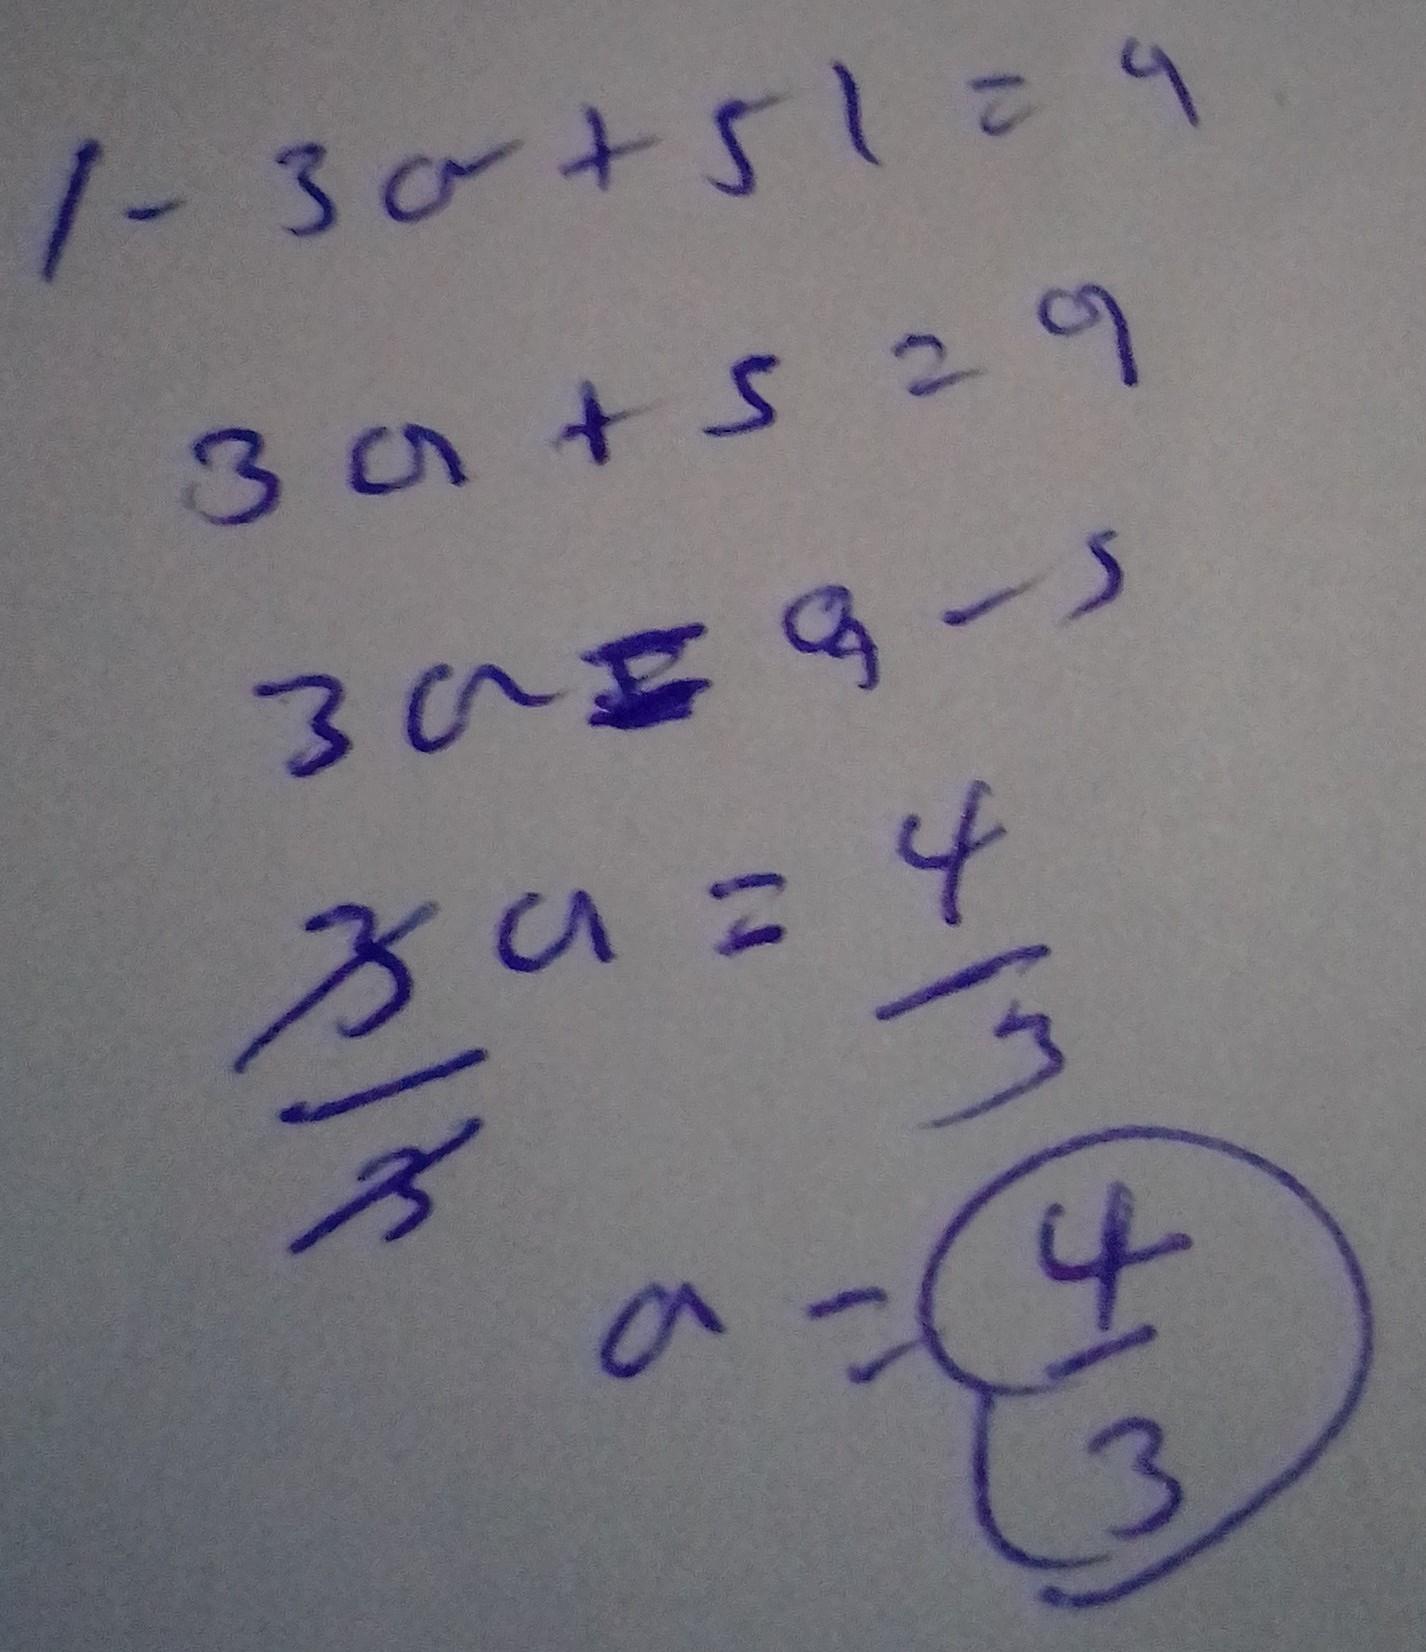 |-3a+5|=9
3a+5=9
3a=9-5
3a/3=4/3
a=4/3